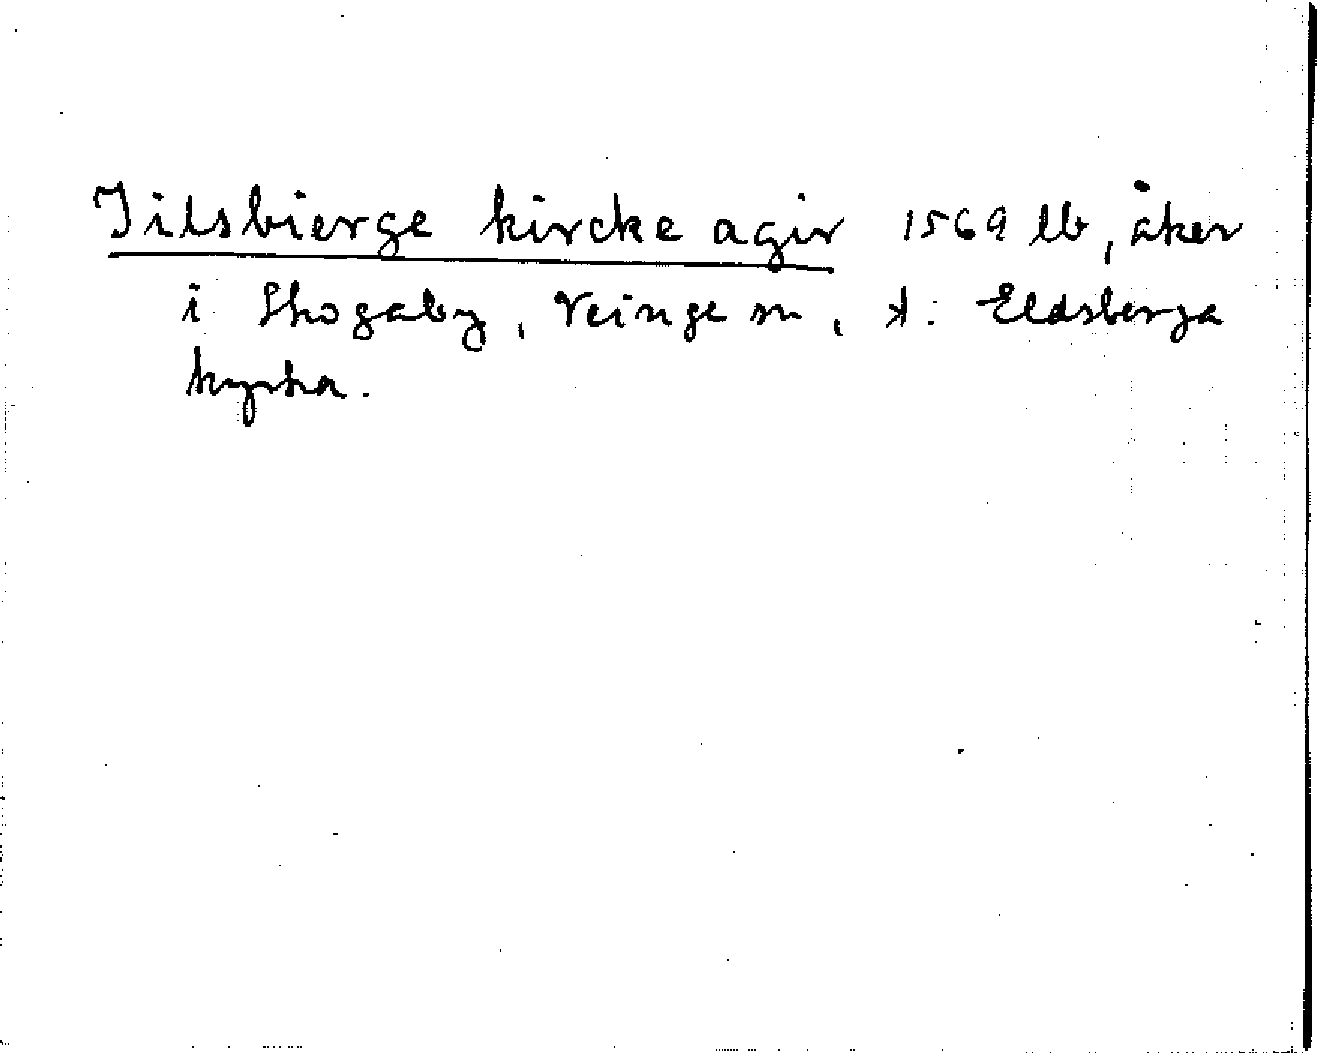 Jilsbierge kircke agir 1569 lb, åker
i Skogaby, Veinge sn, t. Eldsberga
kyrka.